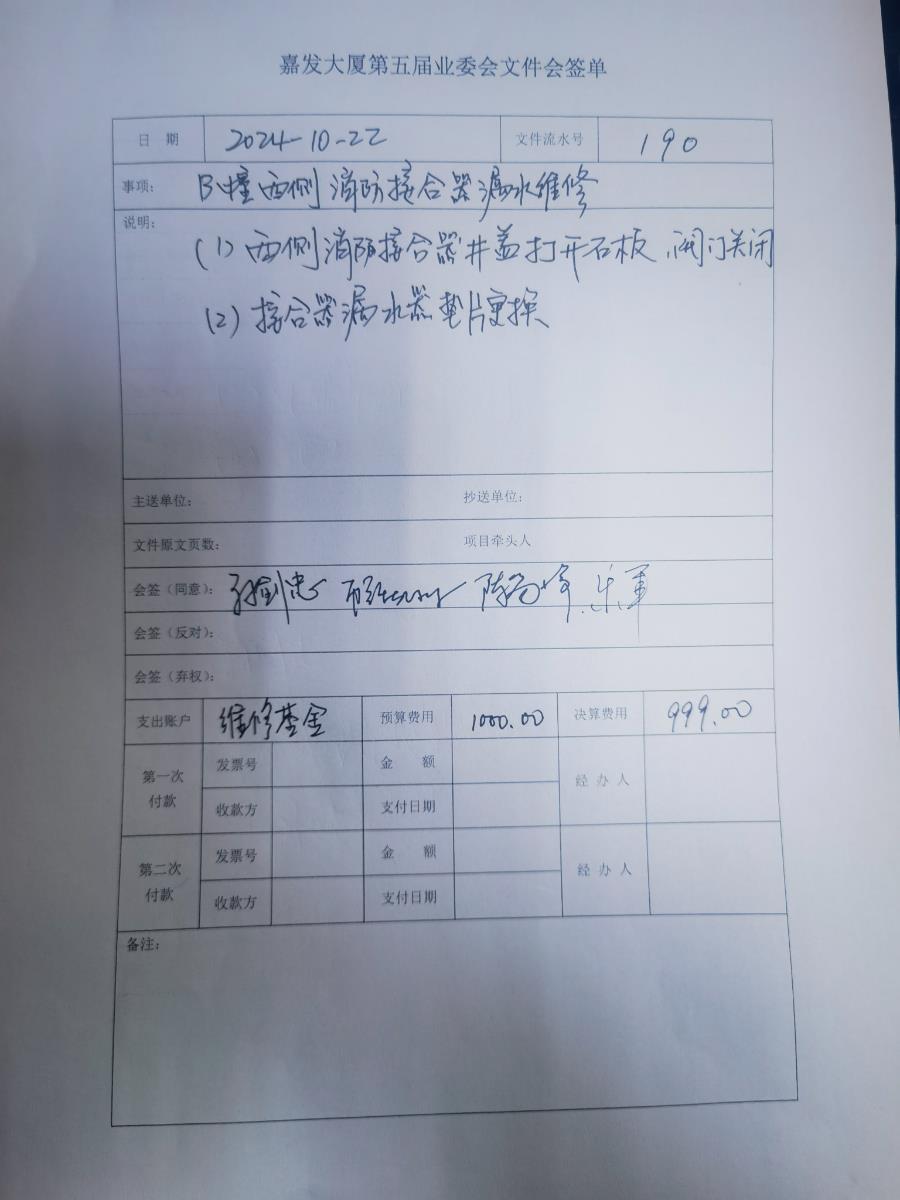 嘉发大厦第五届业委会文件会签单
日 期 2024-10-22 文件流水号 190
事项: B幢西侧消防接合器漏水维修
说明:
(1) 西侧消防接合器井盖打开石板,阀门关闭
(2) 接合器漏水器垫片更换
主送单位: 抄送单位:
文件原文页数: 项目牵头人
会签(同意):
会签(反对):
会签(弃权):
支出账户 维修基金 预算费用 1000.00 决算费用 999.00
第一次付款 发票号 金 额 经 办 人
收款方 支付日期
第二次付款 发票号 金 额 经 办 人
收款方 支付日期
备注: